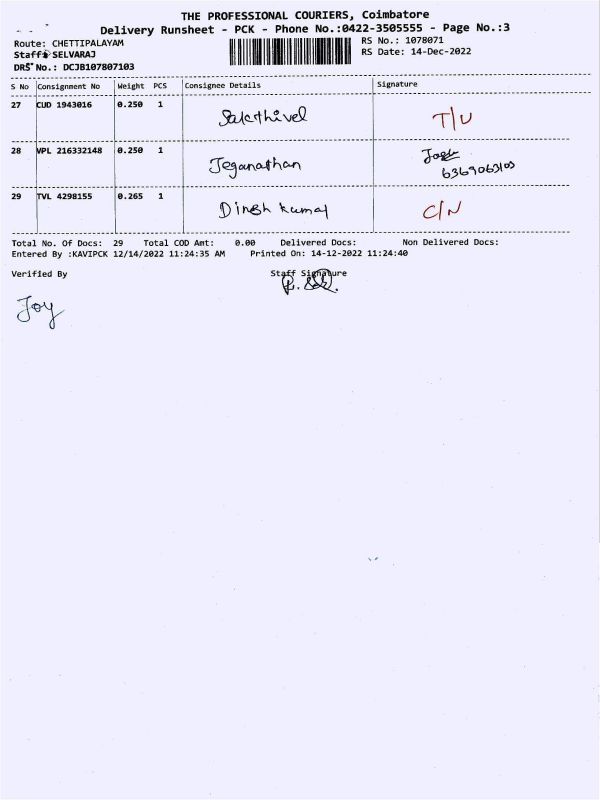 THE PROFESSIONAL COURIERS, Coimbatore
Delivery Runsheet - PCK - Phone No.:0422-3505555 - Page No.:3
Route: CHETTIPALAYAM
RS No.: 1078071
Staff: SELVARAJ
RS Date: 14-Dec-2022
DRS No.: DCJB107807103
S No Consignment No Weight PCS Consignee Details Signature
27 CUD 1943016 0.250 1 Sakthivel T/U
28 VPL 216332148 0.250 1 Jeganathan
6369063103
29 TVL 4298155 0.265 1 Dinesh kumar C/N
Total No. Of Docs: 29 Total COD Amt: 0.00 Delivered Docs: Non Delivered Docs:
Entered By :KAVIPCK 12/14/2022 11:24:35 AM Printed On: 14-12-2022 11:24:40
Verified By Staff Signature
Joy